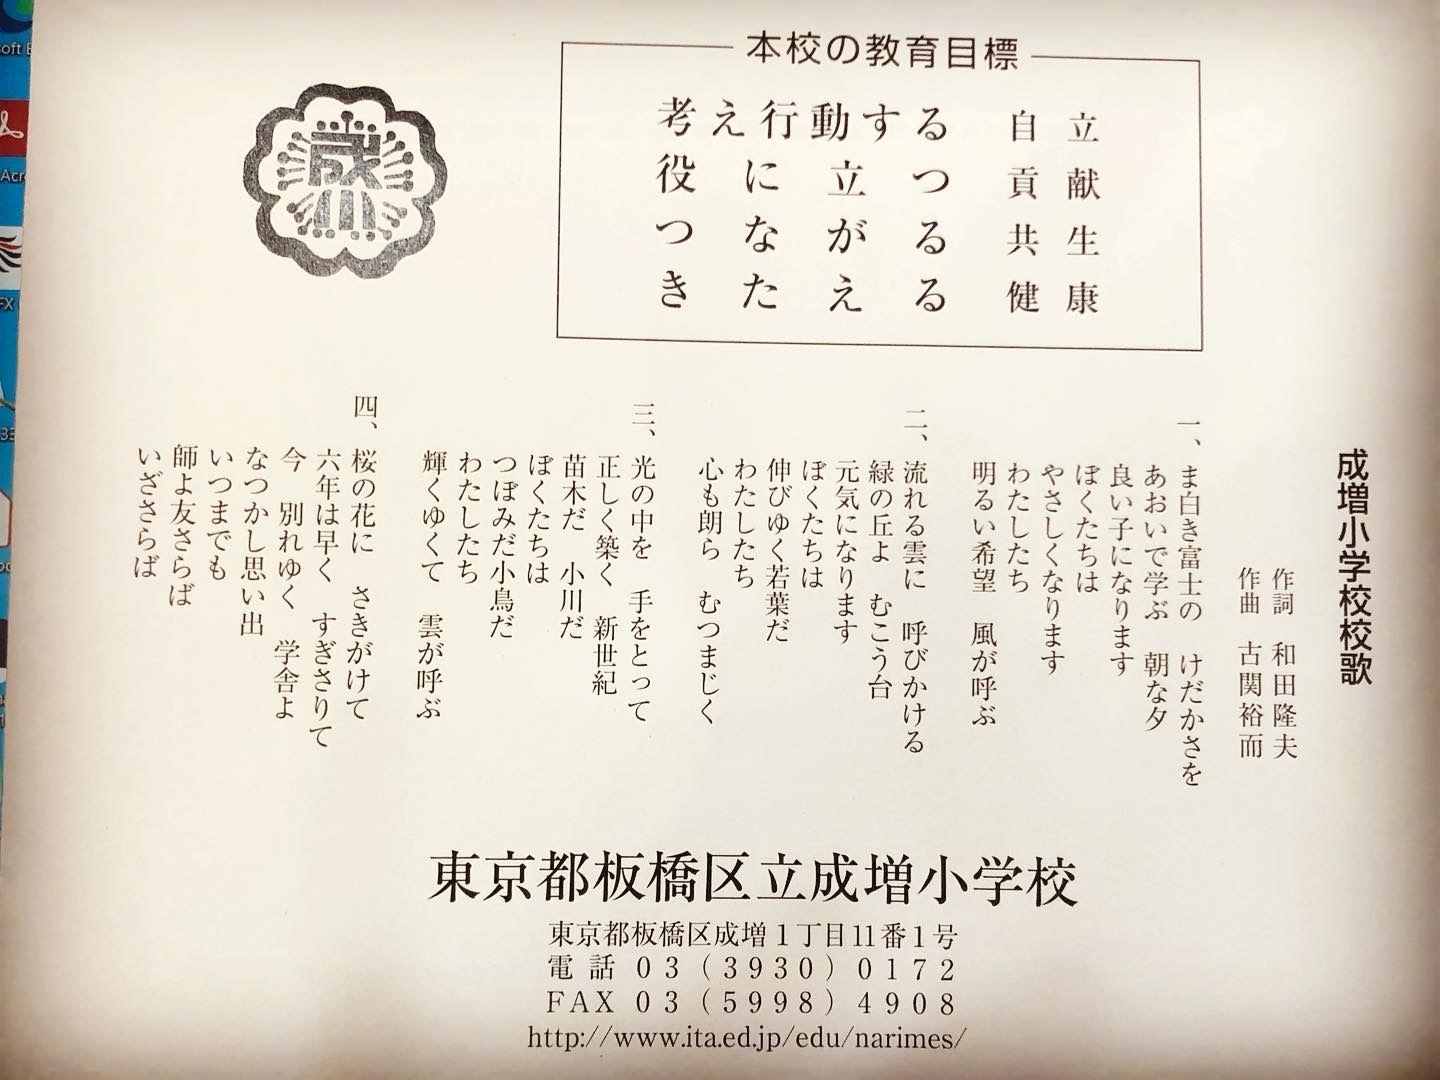 本校の教育目標
考え行動する 自立
役に立つ 貢献
つながる 共生
きたえる 健康
成小
成増小学校校歌
作詞 和田隆夫
作曲 古関裕而
一、ま白き富士の けだかさを
あおいで学ぶ 朝な夕
良い子になります
ぼくたちは
やさしくなります
わたしたち
明るい希望 風が呼ぶ
二、流れる雲に 呼びかける
緑の丘よ むこう台
元気になります
ぼくたちは
伸びゆく若葉だ
わたしたち
心も朗ら むつまじく
三、光の中を 手をとって
正しく築く 新世紀
苗木だ 小川だ
ぼくたちは
つぼみだ小鳥だ
わたしたち
輝くゆくて 雲が呼ぶ
四、桜の花に さきがけて
六年は早く すぎさりて
今 別れゆく 学舎よ
なつかし思い出
いつまでも
師よ友さらば
いざさらば
東京都板橋区立成増小学校
東京都板橋区成増1丁目11番1号
電話 03(3930)0172
FAX 03(5998)4908
http://www.ita.ed.jp/edu/narimes/